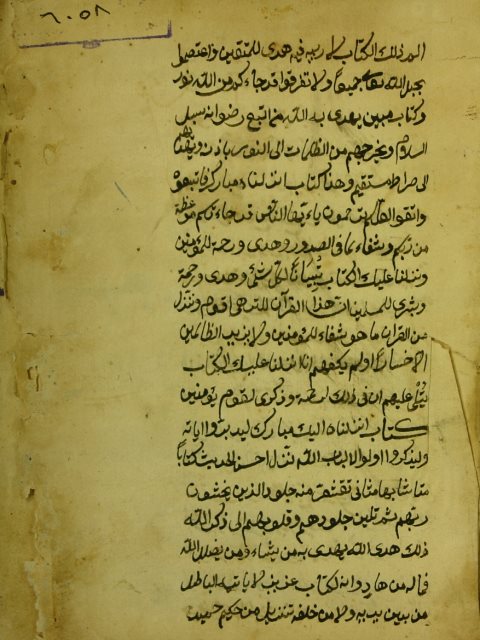 ٦٠٥٨
الم ذلك الكتاب لا ريب فيه هدى للمتقين واعتصموا
بحبل الله جميعا ولا تفرقوا قد جاءكم من الله نور
وكتاب مبين يهدى به الله من اتبع رضوانه سبل
السلام ويخرجهم من الظلمات الى النور باذنه ويهديهم
الى صراط مستقيم وهذا كتاب انزلناه مبارك فاتبعوه
واتقوا لعلكم ترحمون ياءيها الناس قد جاءتكم موعظة
من ربكم وشفاء لما فى الصدور وهدى ورحمة للمؤمنين
ونزلنا عليك الكتاب تبيانا لكل شئ وهدى ورحمة
وبشرى للمسلمين ان هذا القرآن للتى هى اقوم وننزل
من القران ما هو شفاء للمؤمنين ولا يزيد الظالمين
الا خسارا اولم يكفهم انا انزلنا عليك الكتاب
يتلى عليهم ان فى ذلك لرحمة وذكرى لقوم يؤمنين
كتاب انزلناه اليك مبارك ليدبروا اياته
وليذكروا اولوا الالباب الله نزل احسن الحديث كتابا
متشابها مثانى تقشعر منه جلود الذين يخشون
ربهم ثم تلين جلودهم وقلوبهم الى ذكر الله
ذلك هدى الله يهدى به من يشاء ومن يضلل الله
فماله من هاد وانه لكتاب عزيز لا ياتيه الباطل
من بين يديه ولا من خلفه تنزيل من حكيم حميد